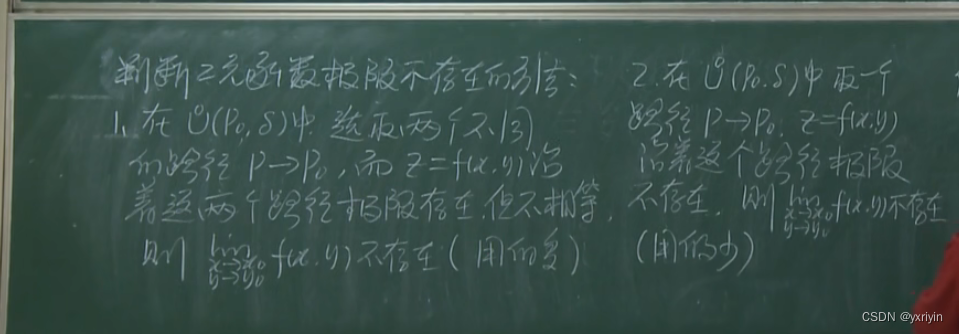 判断二元函数极限不存在的方法：
1. 在 Ů(P₀,δ)中 选取两个不同
的路径 P→P₀，而 z=f(x,y)沿
着这两个路径极限存在,但不相等,
则 lim f(x,y)不存在(用的多)
x→x₀
y→y₀
2.在 Ů(P₀,δ)中取一个
路径 P→P₀, z=f(x,y)
沿着这个路径极限
不存在, 则 lim f(x,y)不存在
x→x₀
y→y₀
(用的少)
CSDN @yxriyin